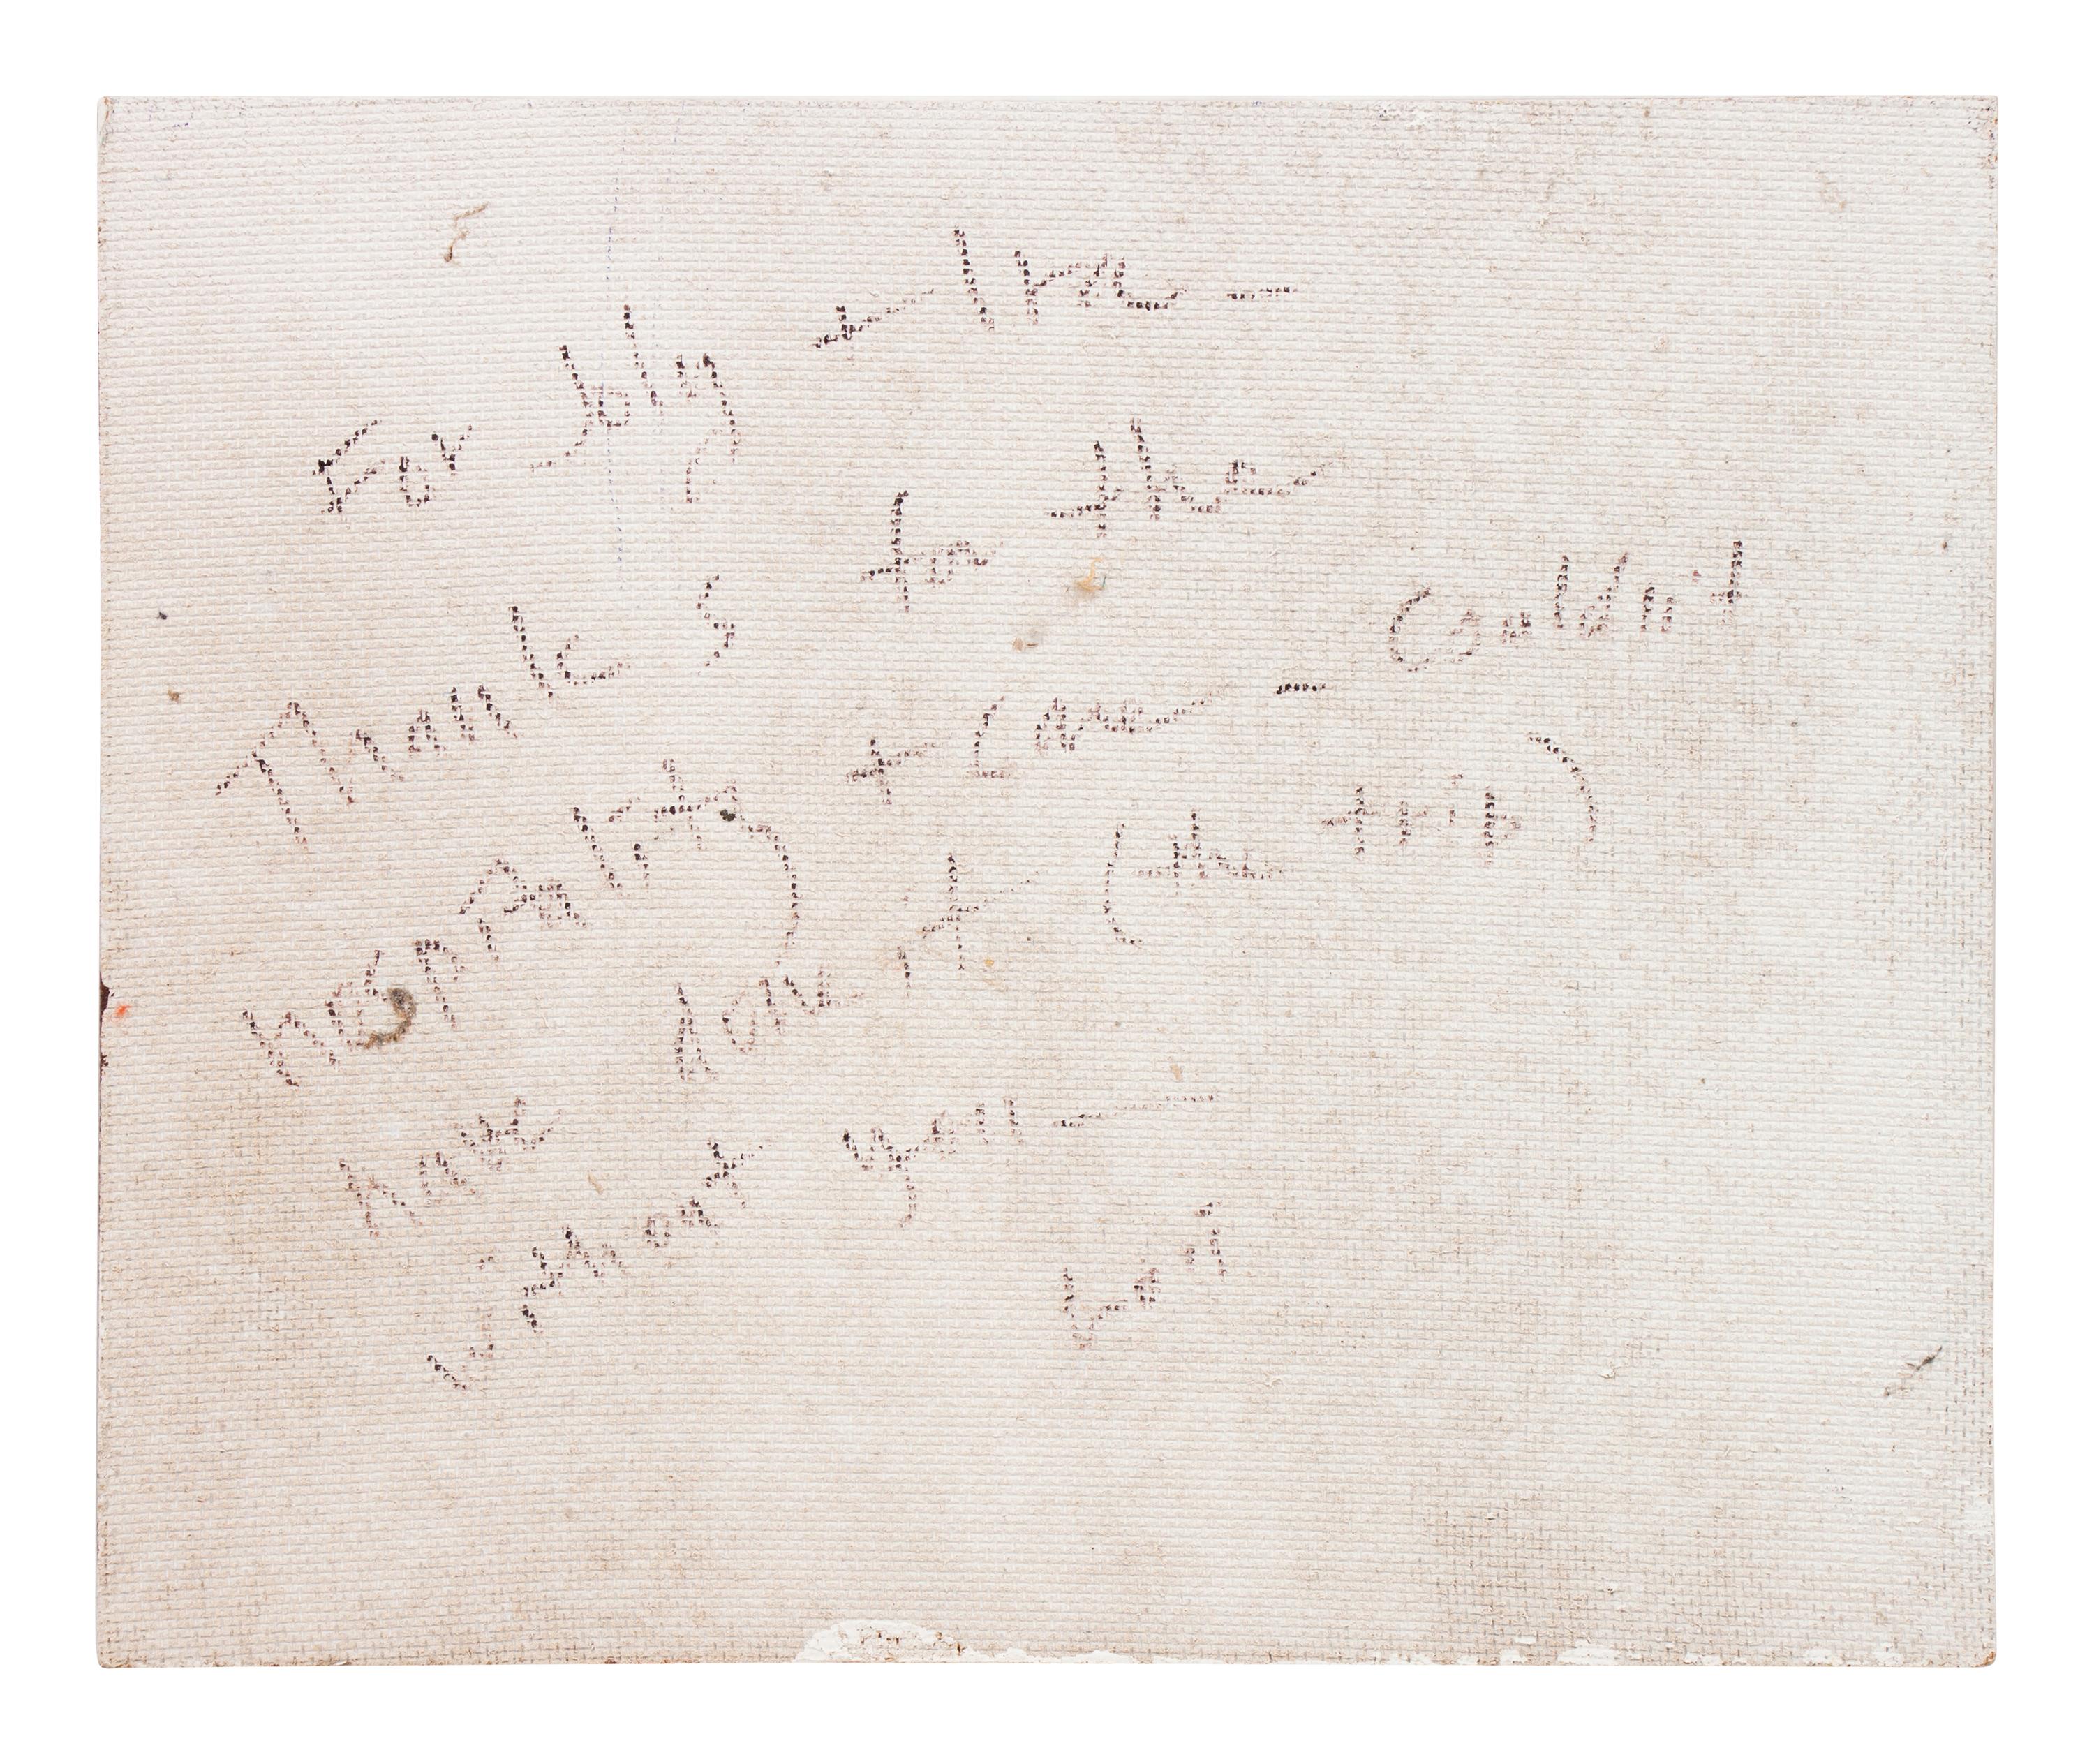 For +
Thanks for the
hospitality + Love — Couldn't
have done it (the trip)
without you —